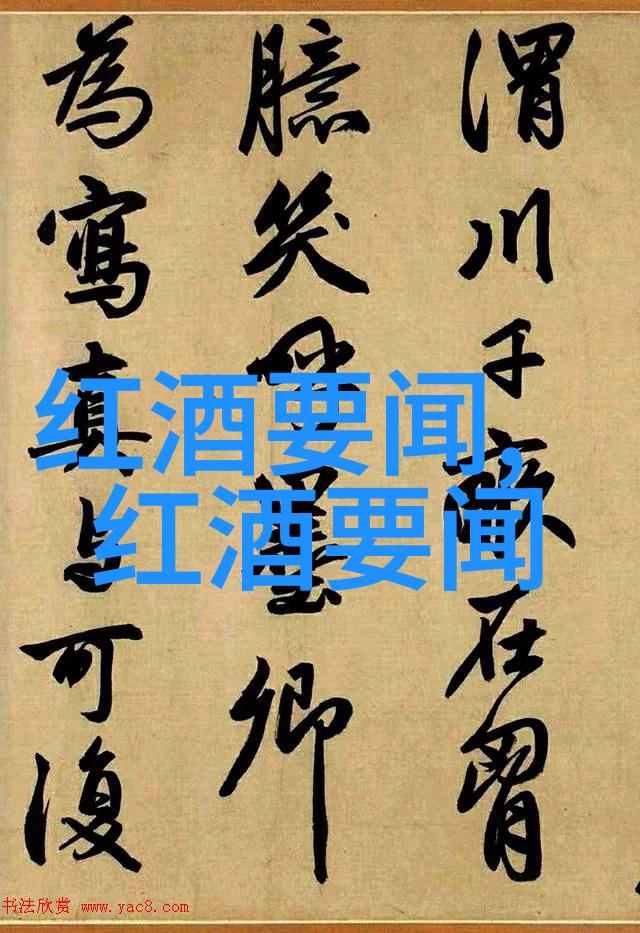 渭川千畝在胷
臆笑呼墨卿
為寫真与可復
红酒要闻,
红酒要闻
书法欣赏 www.yac8.com